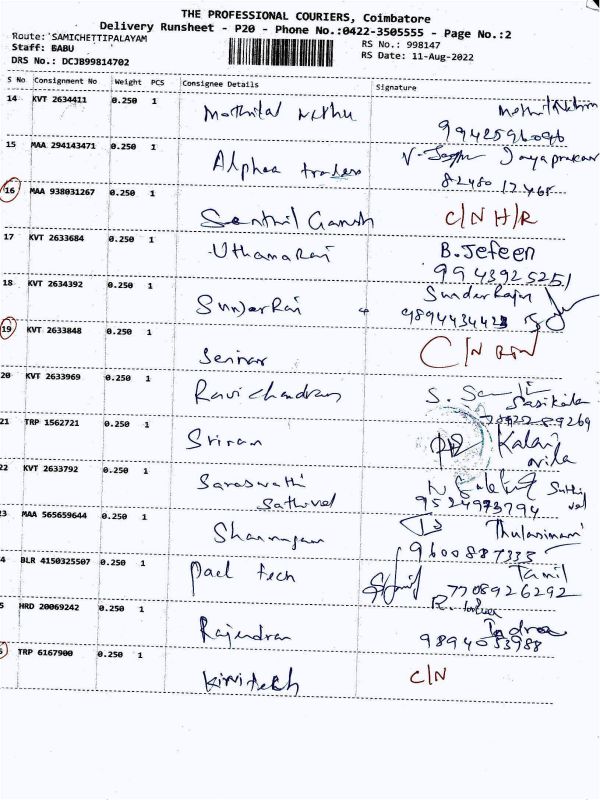 THE PROFESSIONAL COURIERS, Coimbatore
Delivery Runsheet - P20 - Phone No.:0422-3505555 - Page No.:2
Route: SAMICHETTIPALAYAM
RS No.: 998147
Staff: BABU
RS Date: 11-Aug-2022
DRS No.: DCJB99814702
S No Consignment No Weight PCS Consignee Details Signature
14 KVT 2634411 0.250 1 Mothilal
9942596096
15 MAA 294143471 0.250 1 Alphaa traders Jayaprakash
16 MAA 938031267 0.250 1 Senthil Ganesh C/N H/R
17 KVT 2633684 0.250 1 Uthamaraj B. Jefeen
9943925251
18 KVT 2634392 0.250 1 SunderRaj SunderRajan
9894434423
19 KVT 2633848 0.250 1 C/N
20 KVT 2633969 0.250 1 Ravichandran Sasikala
21 TRP 1562721 0.250 1 Sriram Kalai
22 KVT 2633792 0.250 1 Saraswathi
Sathivel
9524973794
23 MAA 565659644 0.250 1 Shanmugam Thulasimani
9600887333
4 BLR 4150325507 0.250 1 Pael tech Tamil
7708926292
5 HRD 20069242 0.250 1 Rajendran Indra
9894053988
TRP 6167900 0.250 1 C/N